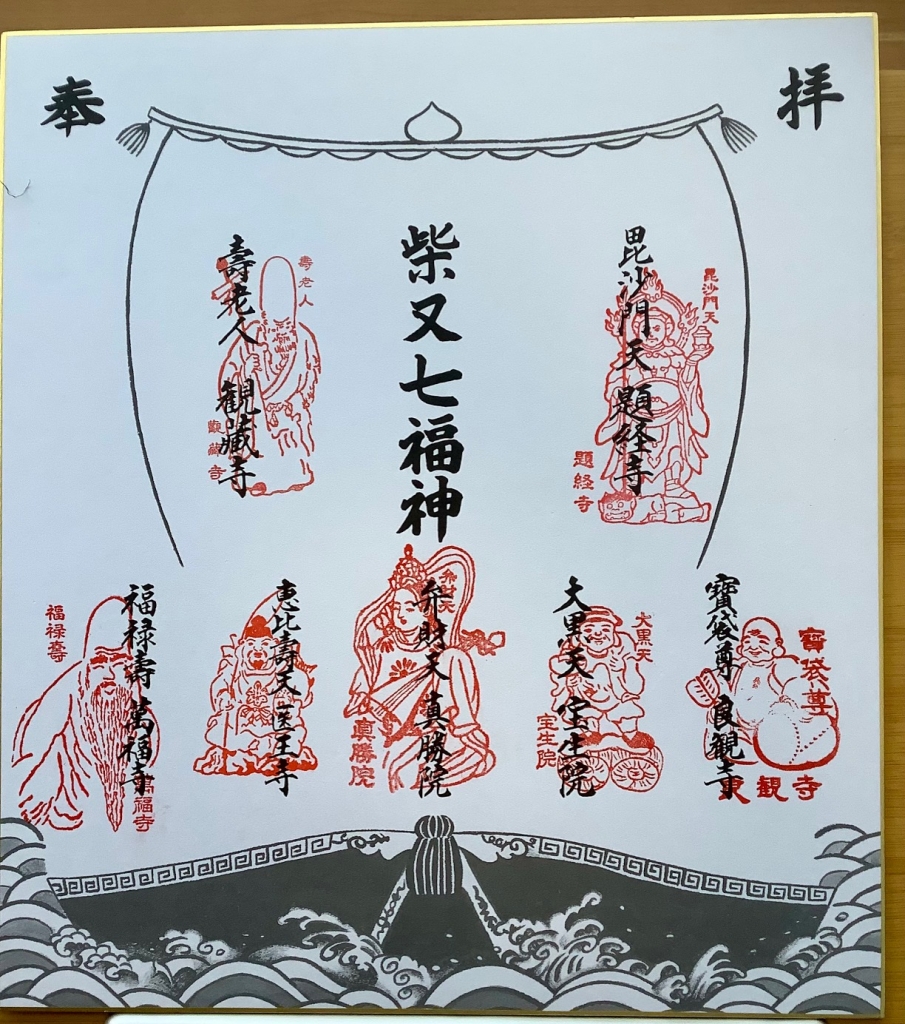 奉拝
柴又七福神
毘沙門天 題経寺
毘沙門天
題経寺
壽老人 観蔵寺
壽老人
観蔵寺
寶袋尊 良観寺
寶袋尊
良観寺
大黒天 宝生院
大黒天
宝生院
弁財天 真勝院
弁財天
真勝院
恵比壽天 医王寺
福禄壽 萬福寺
福禄壽
萬福寺